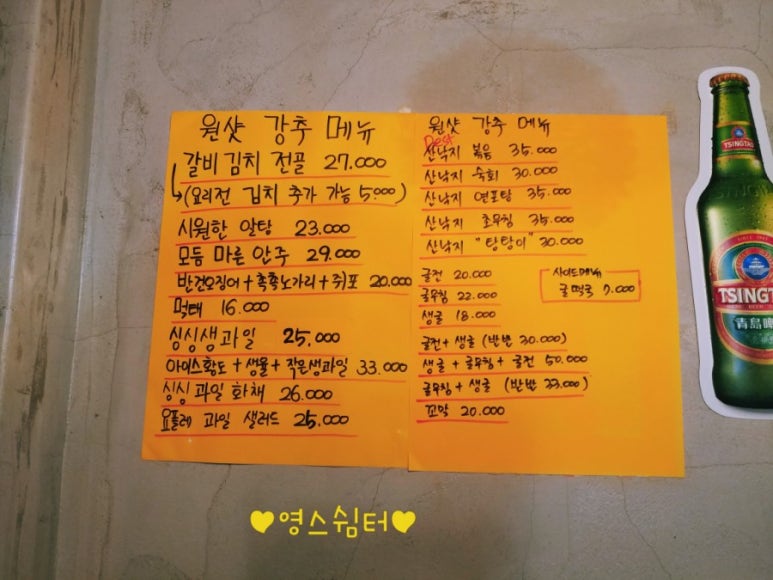 원샷 강추 메뉴
갈비김치 전골 27.000
(요리전 김치 추가 가능 5.000)
시원한 알탕 23.000
모듬 마른 안주 29.000
반건오징어+촉촉노가리+쥐포 20.000
먹태 16.000
싱싱생과일 25.000
아이스황도+생율+작은생과일 33.000
싱싱 과일 화채 26.000
요플레 과일 샐러드 25.000
원샷 강추 메뉴
Best
산낙지 볶음 35.000
산낙지 육회 30.000
산낙지 연포탕 35.000
산낙지 초무침 35.000
산낙지 "탕탕이" 30.000
굴전 20.000
굴무침 22.000
생굴 18.000
굴전+생굴 (반반 30.000)
생굴+굴무침+굴전 50.000
굴무침+생굴 (반반 33.000)
꼬막 20.000
사이드메뉴
굴떡국 7.000
TSINGTAO
TSINGT
青島啤
♥영스쉼터♥